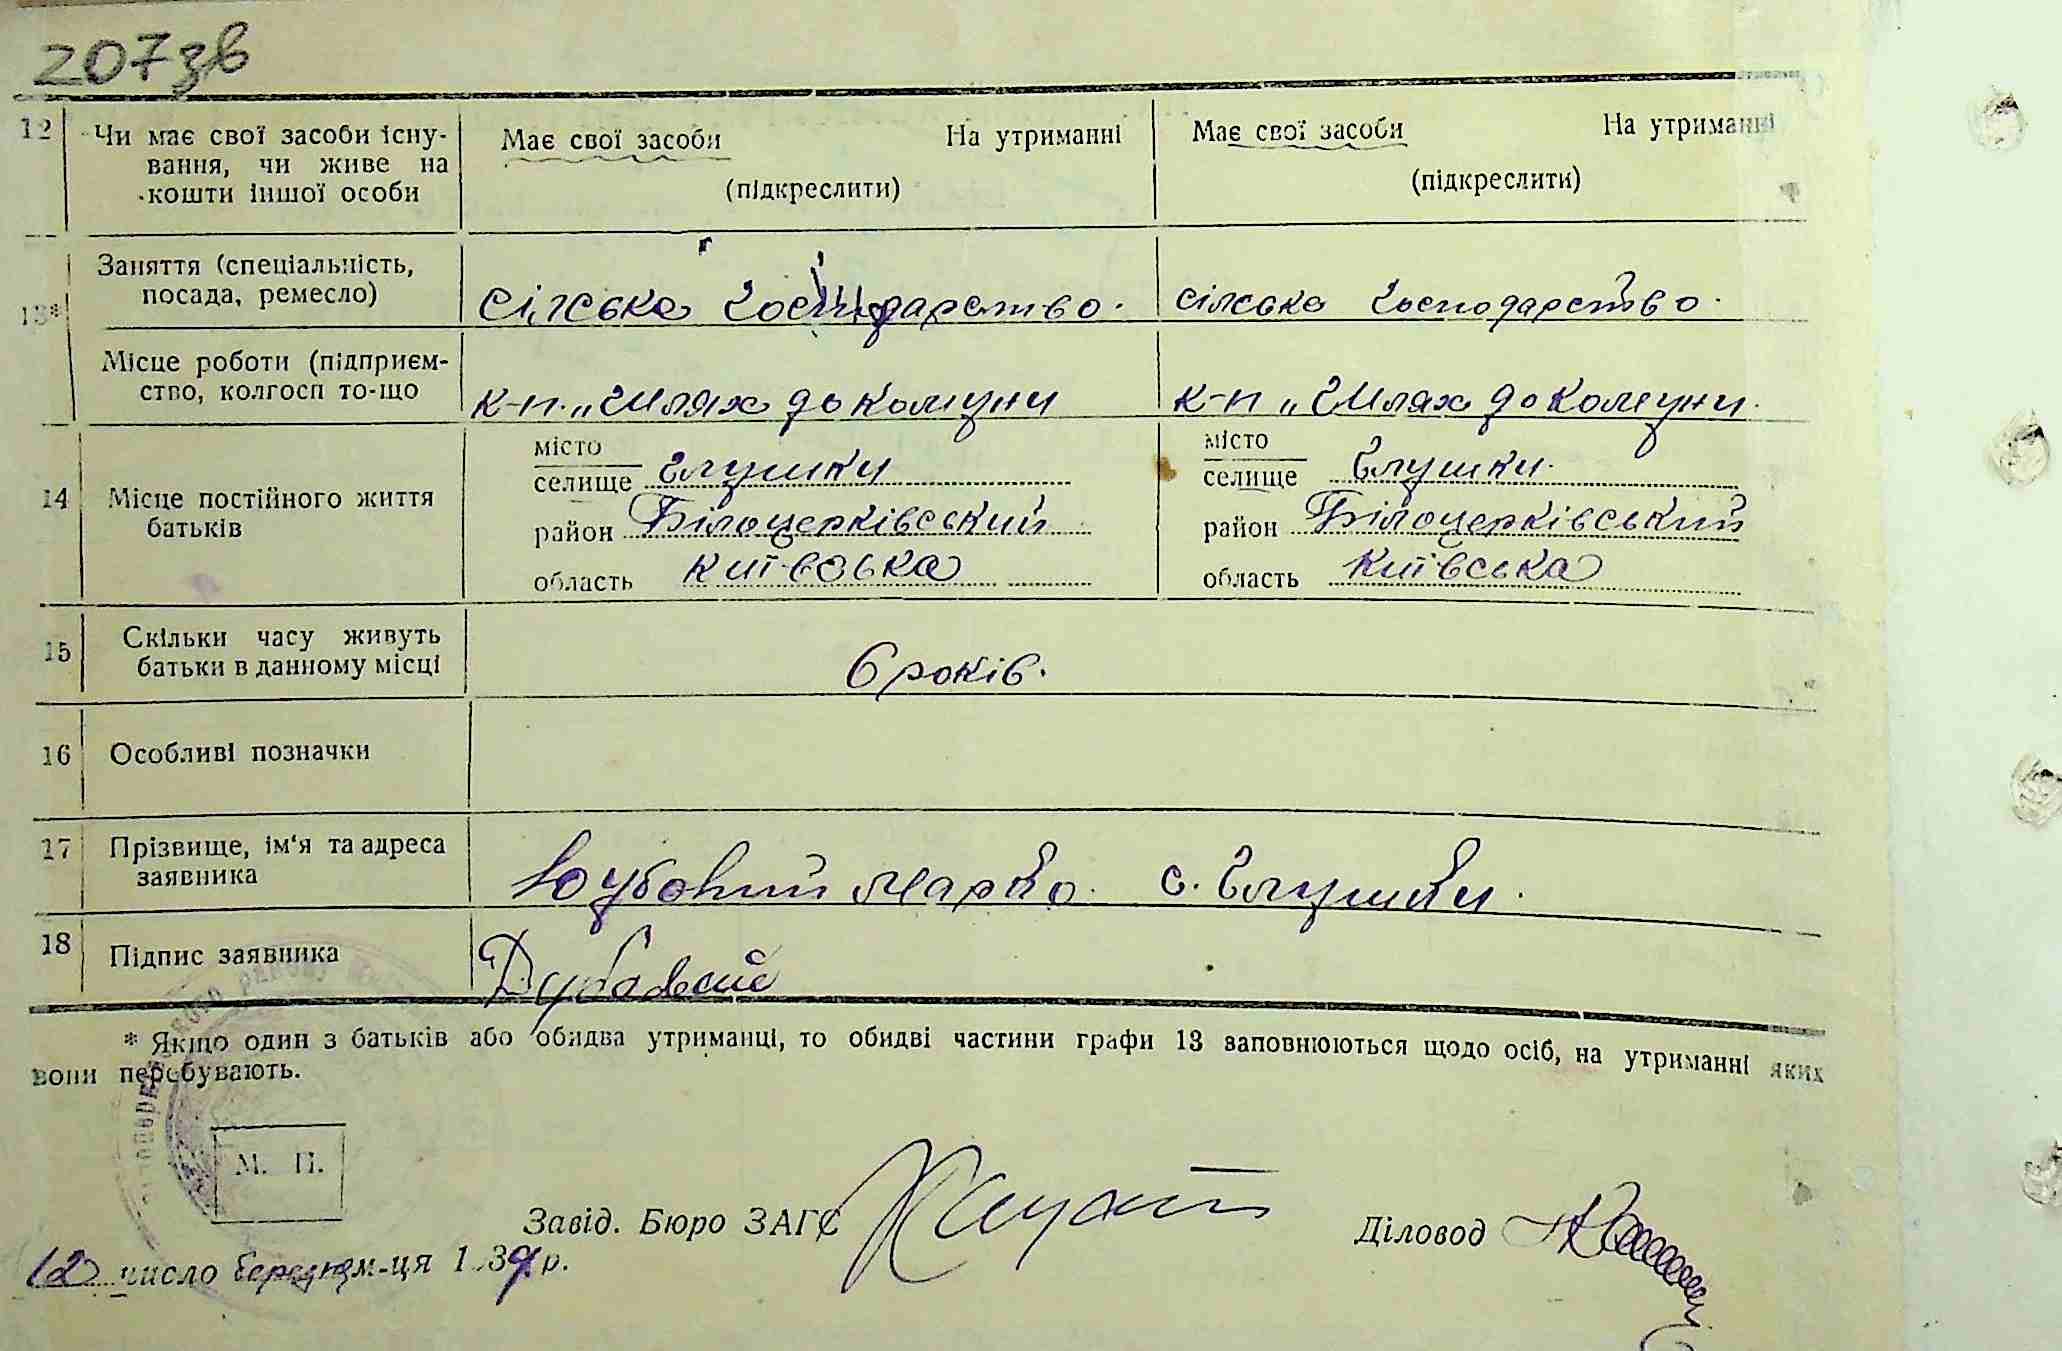 207зв
12 Чи має свої засоби існу- Має свої засоби На утриманні Має свої засоби На утриманні
вання, чи живе на
кошти іншої особи (підкреслити) (підкреслити)
13* Заняття (спеціальність,
посада, ремесло) сілська господарство. сілська господарство.
Місце роботи (підприєм-
ство, колгосп то-що к-п. „Шлях до комуни к-п „Шлях до комуни.
14 Місце постійного життя
батьків
місто місто
селище Глушки селище Глушки.
район Білоцерківський район Білоцерківський
область Київська область Київська
15 Скільки часу живуть
батьки в данному місці 6 років.
16 Особливі позначки
17 Прізвище, ім'я та адреса
заявника Дубовий Марко. с. Глушки.
18 Підпис заявника
* Якщо один з батьків або обидва утриманці, то обидві частини графи 13 заповнюються щодо осіб, на утриманні яких
вони перебувають.
М. П.
Завід. Бюро ЗАГС Діловод
12 число березня м-ця 1939 р.